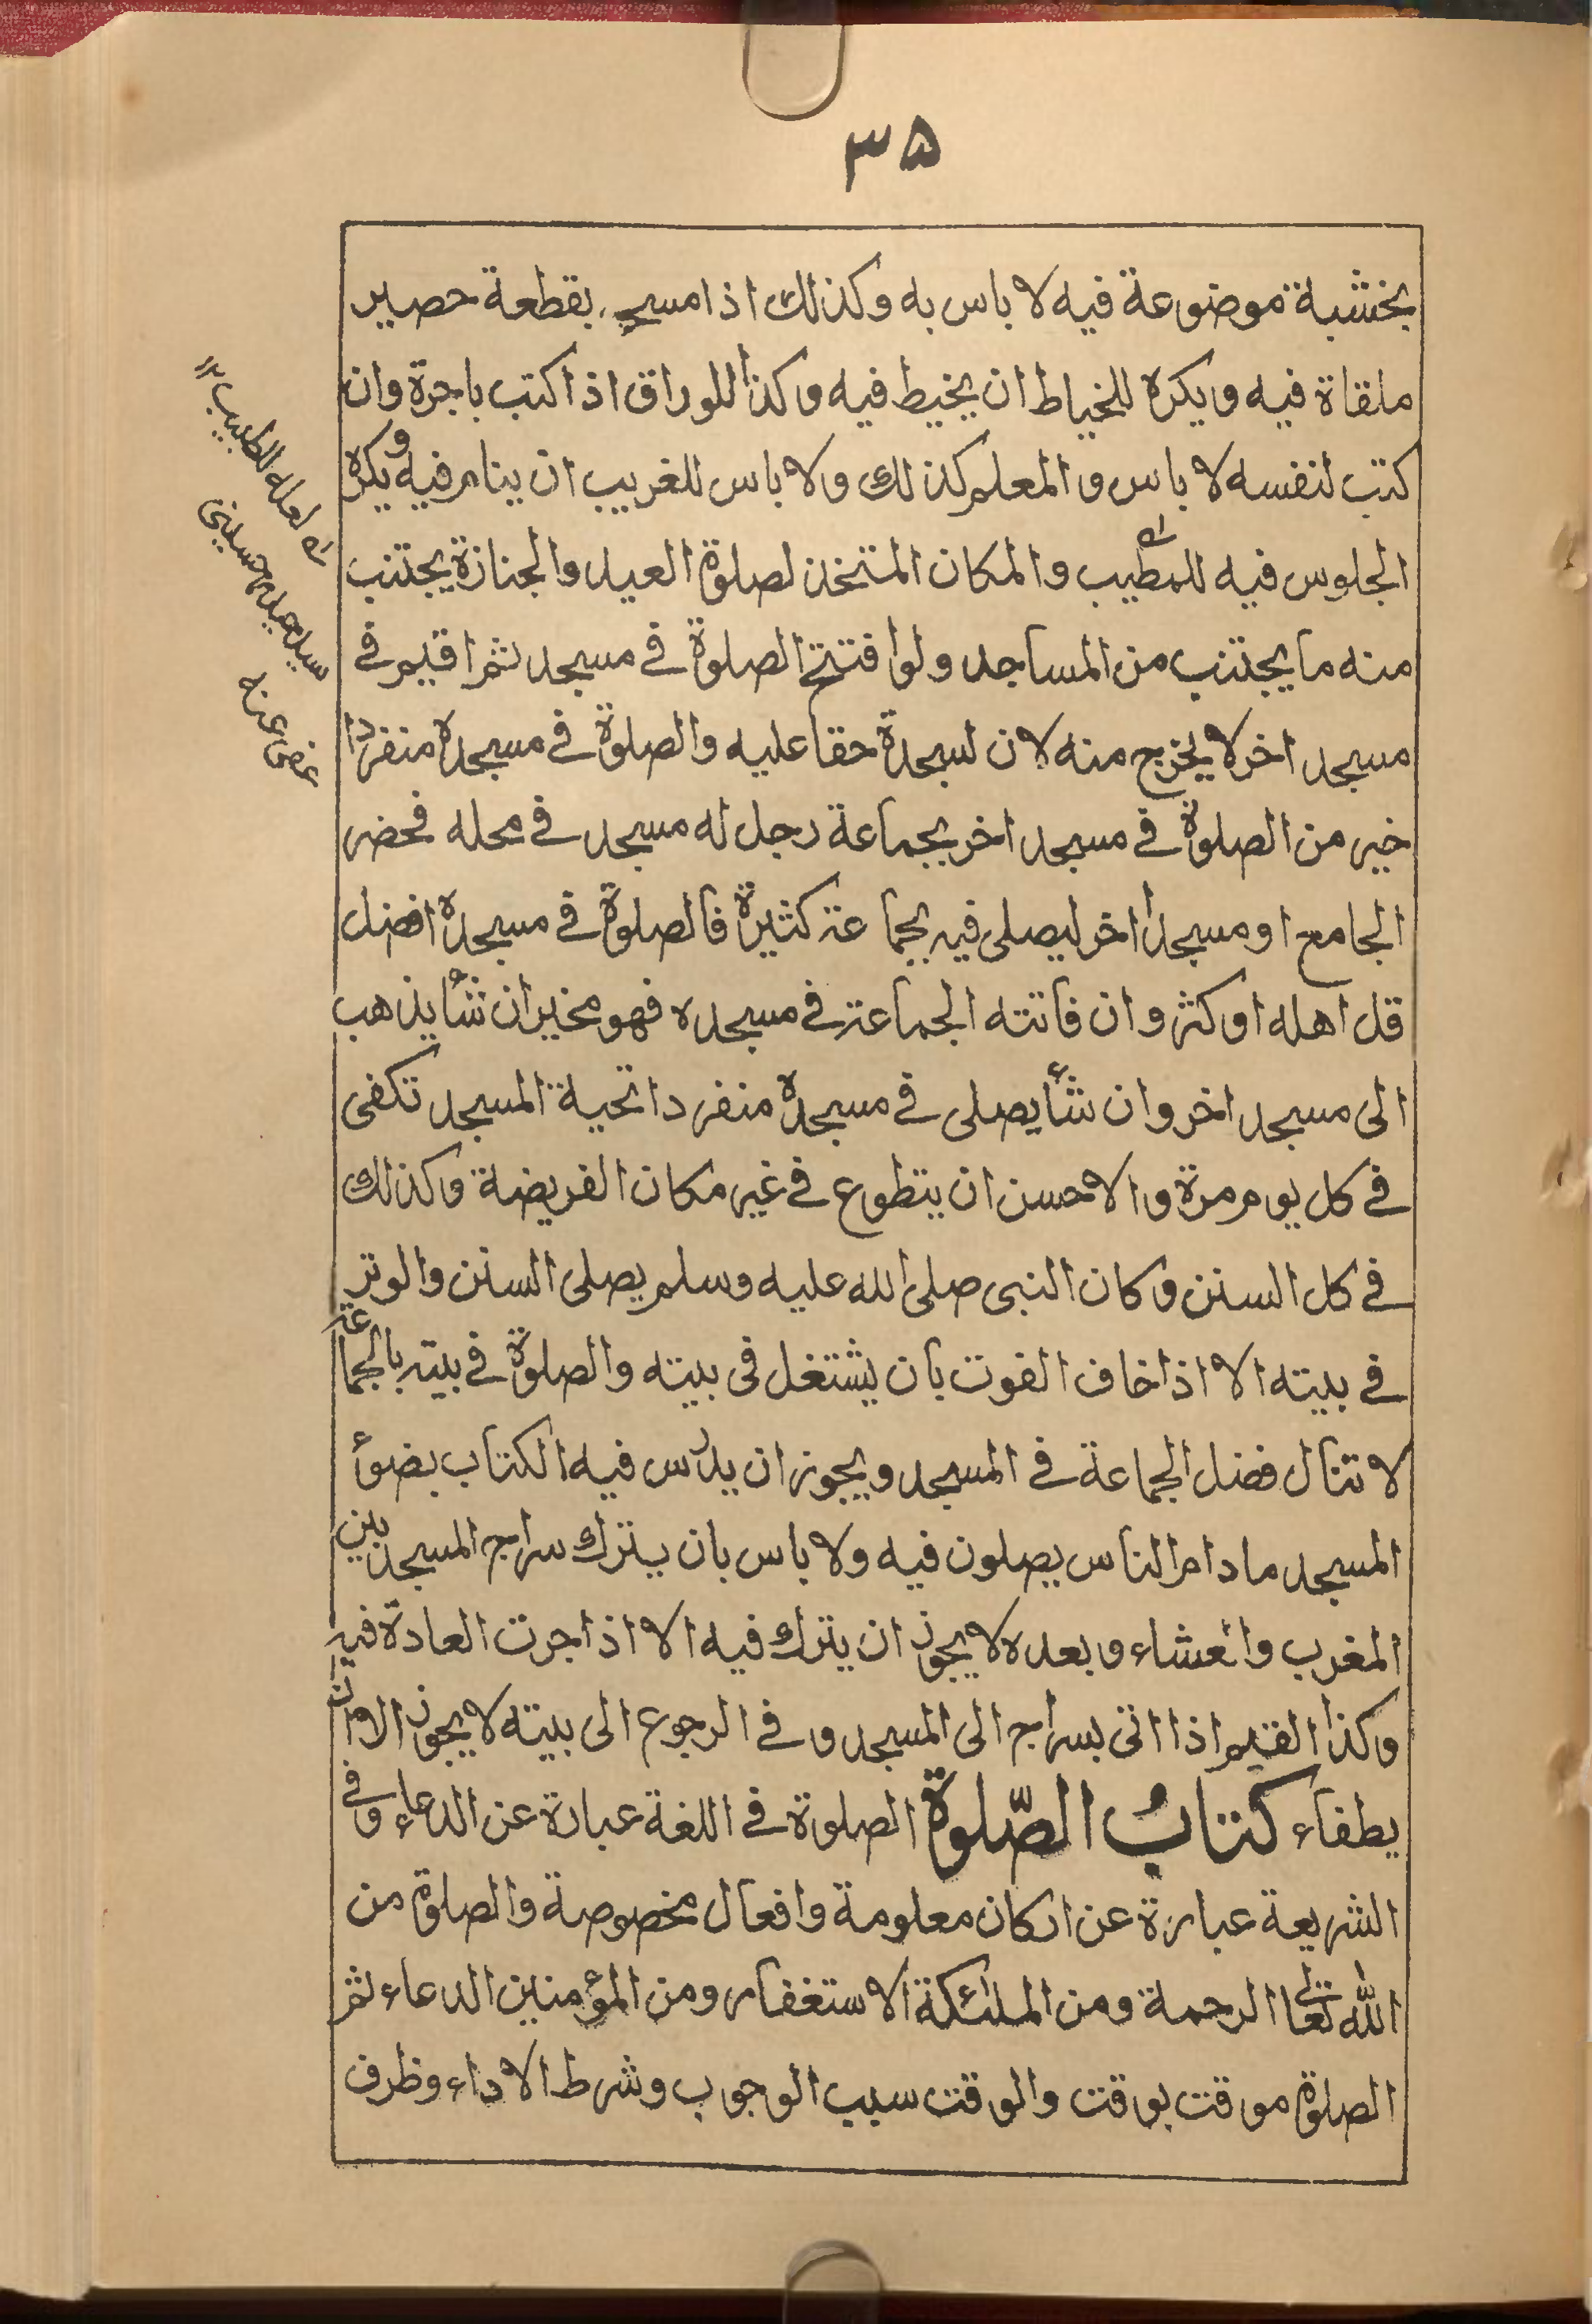 ۳۵
بخشبة موضوعة فيه لا باس به وكذلك اذا مسح بقطعة حصير
ملقاة فيه ويكره للخياط ان يخيط فيه وكذا للوراق اذا كتب باجرة وان
كتب لنفسه لا باس والمعلم كذلك ولا باس للغريب ان ينام فيه ويكره
الجلوس فيه للمطيب والمكان المتخذ لصلوة العيد والجنازة يجتنب
منه ما يجتنب من المساجد ولو افتتح الصلوة في مسجد ثم اقيم في
مسجد اخر لا يخرج منه لان لمسجده حقا عليه والصلوة في مسجده منفردا
خير من الصلوة في مسجد اخر بجماعة رجل له مسجد في محله فحضر
الجامع او مسجدا اخر ليصلى فيه بجماعة كثيرة فالصلوة في مسجده افضل
قل اهله او كثر وان فاتته الجماعة في مسجده فهو مخير ان شأ يذهب
الى مسجد اخر وان شأ يصلى في مسجده منفردا تحية المسجد تكفى
في كل يوم مرة والاحسن ان يتطوع في غير مكان الفريضة وكذلك
في كل السنن وكان النبى صلى الله عليه وسلم يصلى السنن والوتر
في بيته الا اذا خاف الفوت بان يشتغل فى بيته والصلوة في بيته بالجماعة
لا تنال فضل الجماعة في المسجد ويجوز ان يدرس فيه الكتاب بضوأ
المسجد ما دام الناس يصلون فيه ولا باس بان يترك سراج المسجد بين
المغرب والعشاء وبعده لا يجوز ان يترك فيه الا اذا جرت العادة فيه
وكذا القيم اذا اتى بسراج الى المسجد و في الرجوع الى بيته لا يجوز الا وان
يطفاء كتابُ الصّلوة الصلوة في اللغة عبارة عن الدعاء وفي
الشريعة عبارة عن اركان معلومة وافعال مخصوصة والصلوة من
الله تعالى الرحمة ومن الملئكة الاستغفار ومن المؤمنين الدعاء ثم
الصلوة موقت بوقت والوقت سبب الوجوب وشرط الاداء وظرف
له لعله للطبيب ١٢
سيد حسينى
عفى عنه